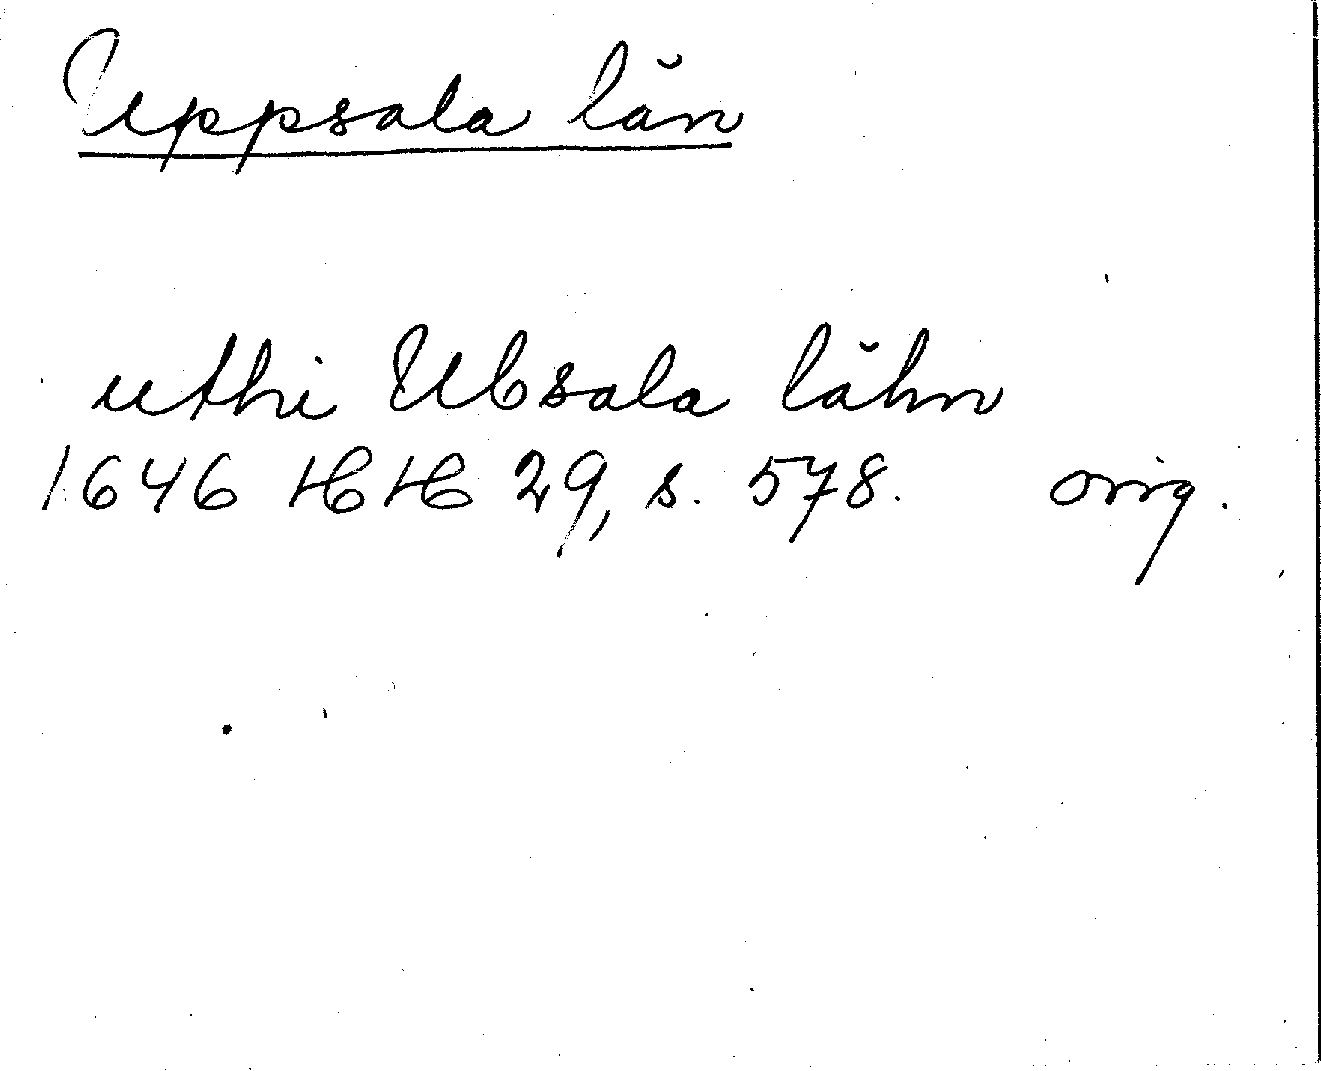 Uppsala län
uthi Ubsala lähn
1646 HH 29, s. 578. orig.